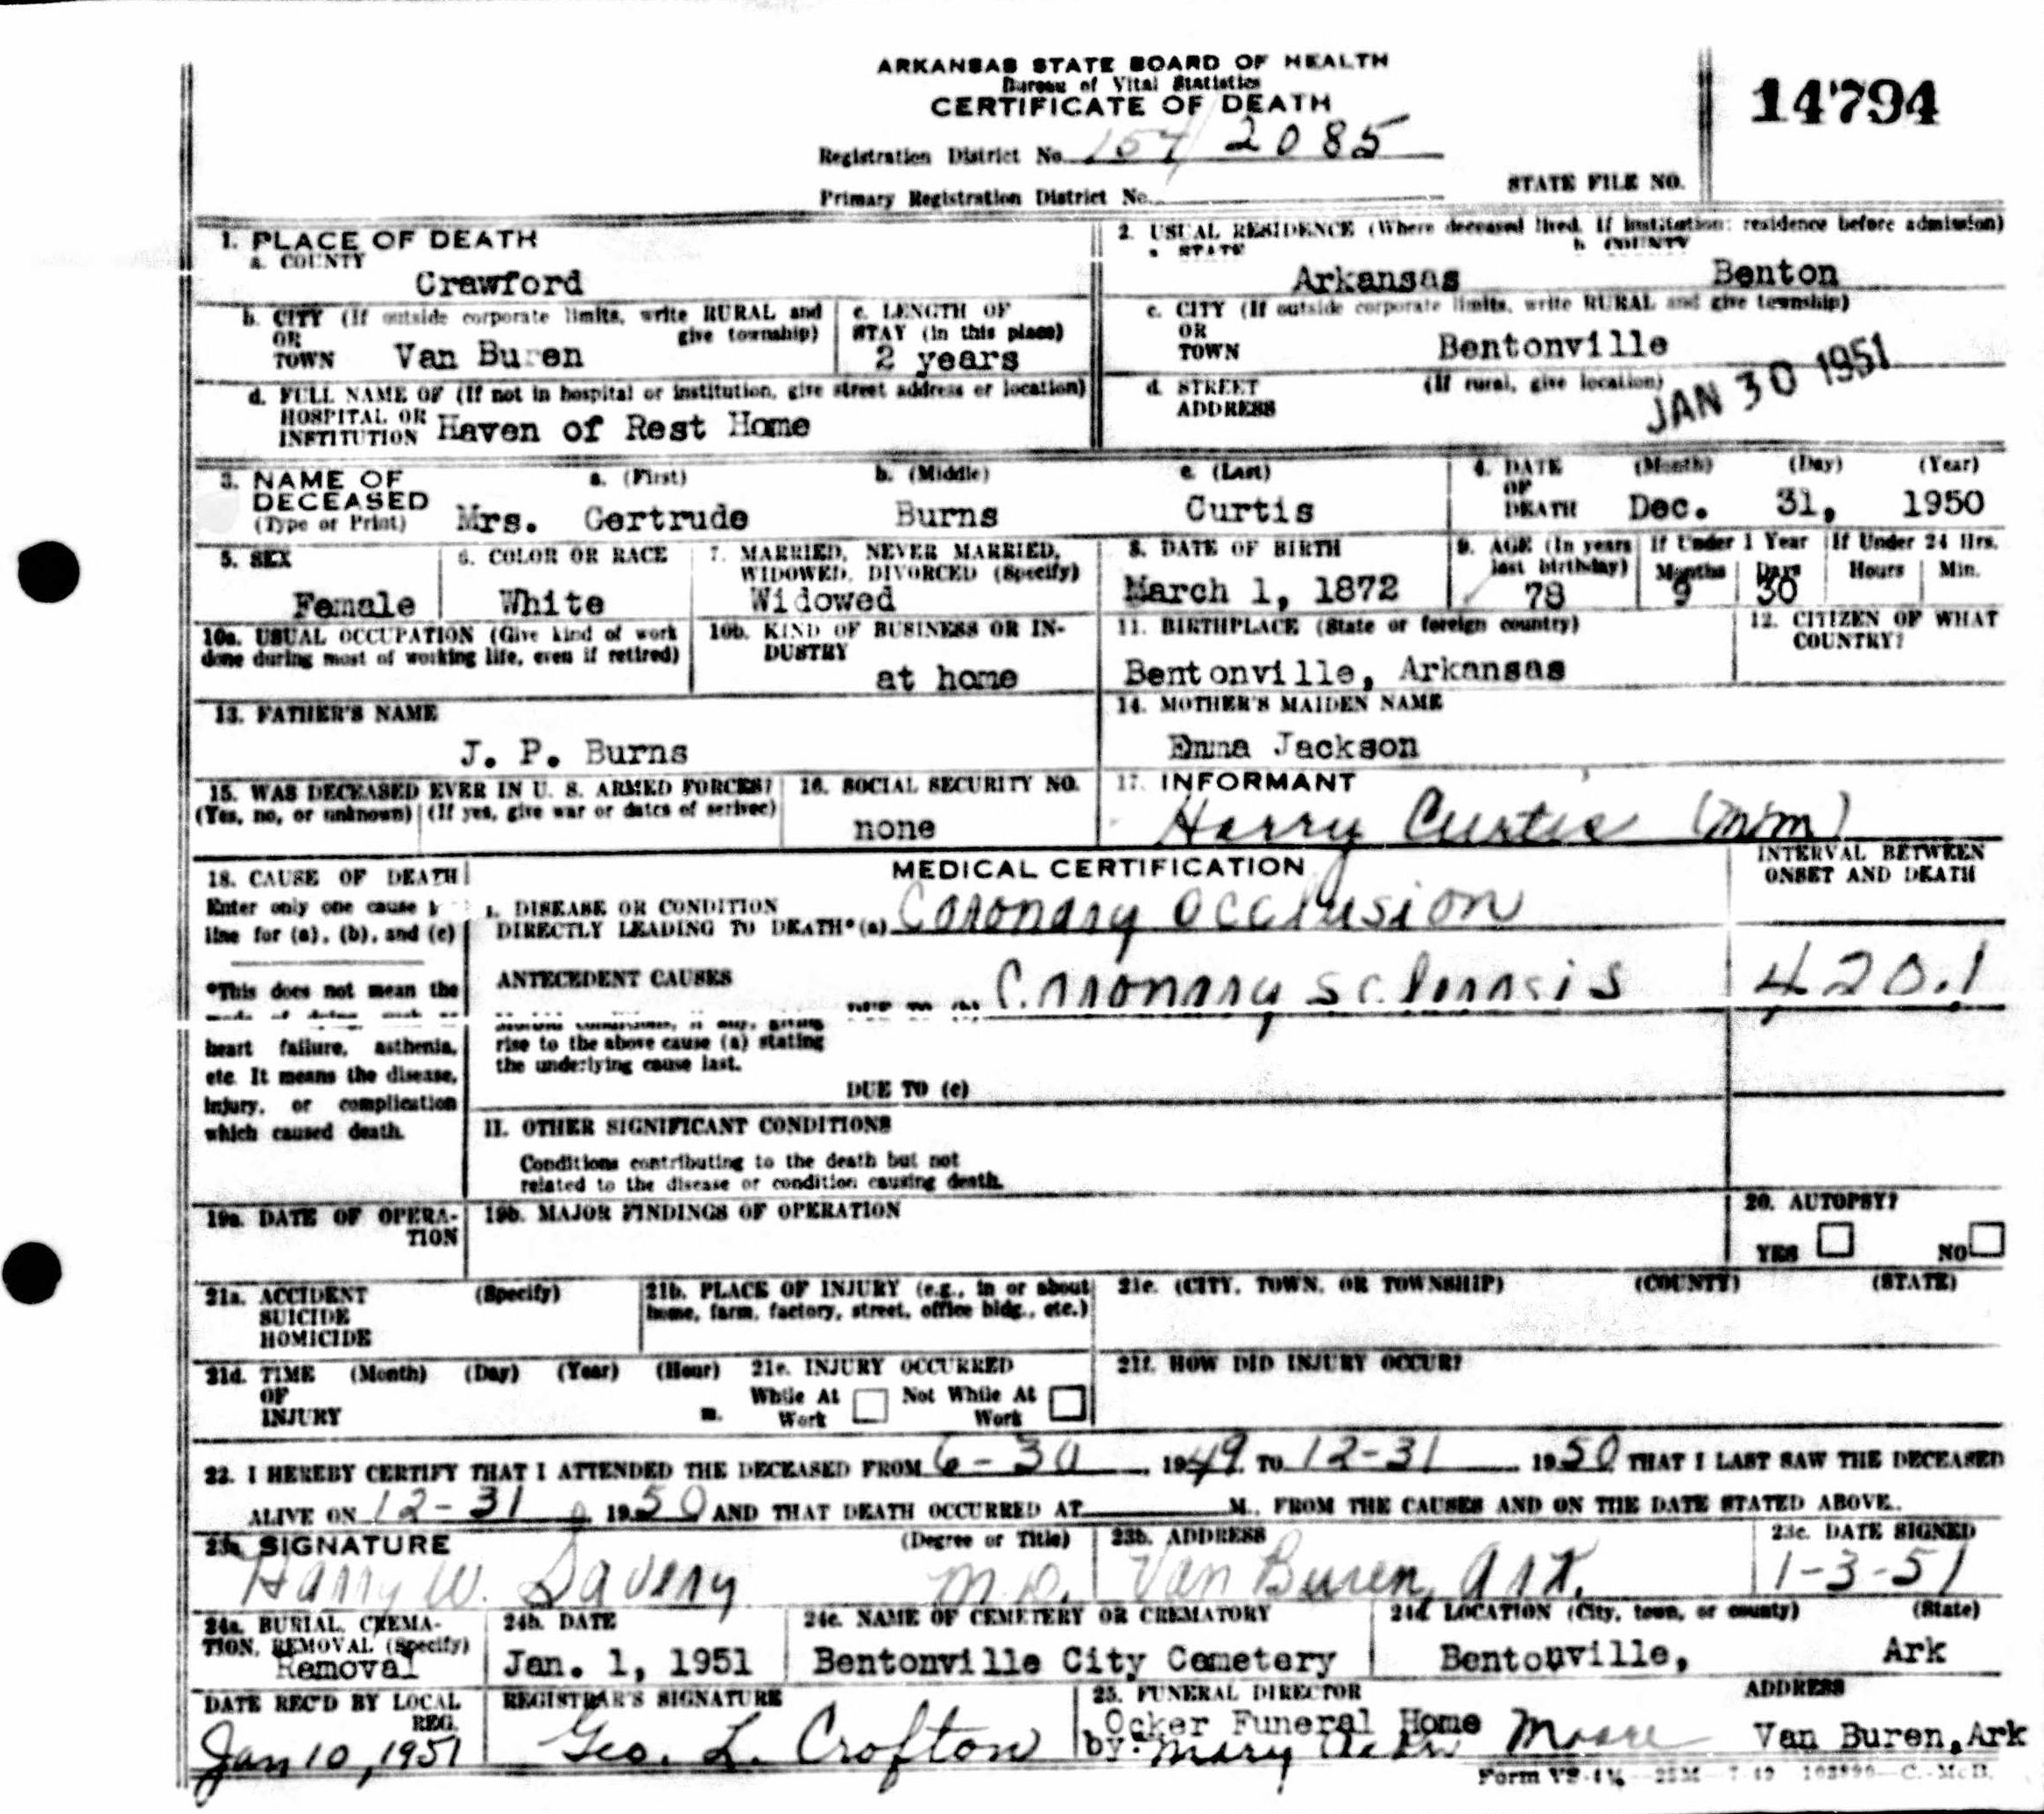 ARKANSAS STATE BOARD OF HEALTH
Bureau of Vital Statistics
CERTIFICATE OF DEATH
14794
Registration District No. 157/ 2085
Primary Registration District No.
STATE FILE NO.
1. PLACE OF DEATH
a. COUNTY
Crawford
2. USUAL RESIDENCE (Where deceased lived. If institution: residence before admission)
a. STATE b. COUNTY
Arkansas Benton
b. CITY (If outside corporate limits, write RURAL and give township)
OR
TOWN Van Buren
c. LENGTH OF
STAY (in this place)
2 years
c. CITY (If outside corporate limits, write RURAL and give township)
OR
TOWN Bentonville
d. FULL NAME OF (If not in hospital or institution, give street address or location)
HOSPITAL OR
INSTITUTION Haven of Rest Home
d. STREET (If rural, give location)
ADDRESS
JAN 30 1951
3. NAME OF
DECEASED
(Type or Print)
a. (First) b. (Middle) c. (Last)
Mrs. Gertrude Burns Curtis
4. DATE (Month) (Day) (Year)
OF
DEATH Dec. 31, 1950
5. SEX
Female
6. COLOR OR RACE
White
7. MARRIED, NEVER MARRIED,
WIDOWED, DIVORCED (Specify)
Widowed
8. DATE OF BIRTH
March 1, 1872
9. AGE (In years
last birthday)
78
If Under 1 Year
Months Days
9 30
If Under 24 Hrs.
Hours Min.
10a. USUAL OCCUPATION (Give kind of work
done during most of working life, even if retired)
10b. KIND OF BUSINESS OR IN-
DUSTRY
at home
11. BIRTHPLACE (State or foreign country)
Bentonville, Arkansas
12. CITIZEN OF WHAT
COUNTRY?
13. FATHER'S NAME
J. P. Burns
14. MOTHER'S MAIDEN NAME
Emma Jackson
15. WAS DECEASED EVER IN U. S. ARMED FORCES?
(Yes, no, or unknown) (If yes, give war or dates of serivec)
16. SOCIAL SECURITY NO.
none
17. INFORMANT
Harry Curtis
18. CAUSE OF DEATH
Enter only one cause
line for (a), (b), and (c)
MEDICAL CERTIFICATION
INTERVAL BETWEEN
ONSET AND DEATH
I. DISEASE OR CONDITION
DIRECTLY LEADING TO DEATH*(a) Coronary occlusion
*This does not mean the
heart failure, asthenia,
etc. It means the disease,
injury, or complication
which caused death.
ANTECEDENT CAUSES
Coronary sclerosis
420.1
rise to the above cause (a) stating
the underlying cause last.
DUE TO (c)
II. OTHER SIGNIFICANT CONDITIONS
Conditions contributing to the death but not
related to the disease or condition causing death.
19a. DATE OF OPERA-
TION
19b. MAJOR FINDINGS OF OPERATION
20. AUTOPSY?
YES NO
21a. ACCIDENT (Specify)
SUICIDE
HOMICIDE
21b. PLACE OF INJURY (e.g., in or about
home, farm, factory, street, office bldg., etc.)
21c. (CITY, TOWN, OR TOWNSHIP) (COUNTY) (STATE)
21d. TIME (Month) (Day) (Year) (Hour)
OF
INJURY m.
21e. INJURY OCCURRED
While At Work Not While At Work
21f. HOW DID INJURY OCCUR?
22. I HEREBY CERTIFY THAT I ATTENDED THE DECEASED FROM 6-30, 1949. TO 12-31 1950 THAT I LAST SAW THE DECEASED
ALIVE ON 12-31, 1950 AND THAT DEATH OCCURRED AT M., FROM THE CAUSES AND ON THE DATE STATED ABOVE.
23a SIGNATURE (Degree or Title)
Harry W. Savery M.D.
23b. ADDRESS
Van Buren, Ark.
23c. DATE SIGNED
1-3-51
24a. BURIAL, CREMA-
TION, REMOVAL (Specify)
Removal
24b. DATE
Jan. 1, 1951
24c. NAME OF CEMETERY OR CREMATORY
Bentonville City Cemetery
24d LOCATION (City, town, or county) (State)
Bentonville, Ark
DATE REC'D BY LOCAL
REG.
Jan 10, 1951
REGISTRAR'S SIGNATURE
Geo. L. Crofton
25. FUNERAL DIRECTOR ADDRESS
Ocker Funeral Home Moore Van Buren, Ark
by: Mary Ocker
Form VS-4